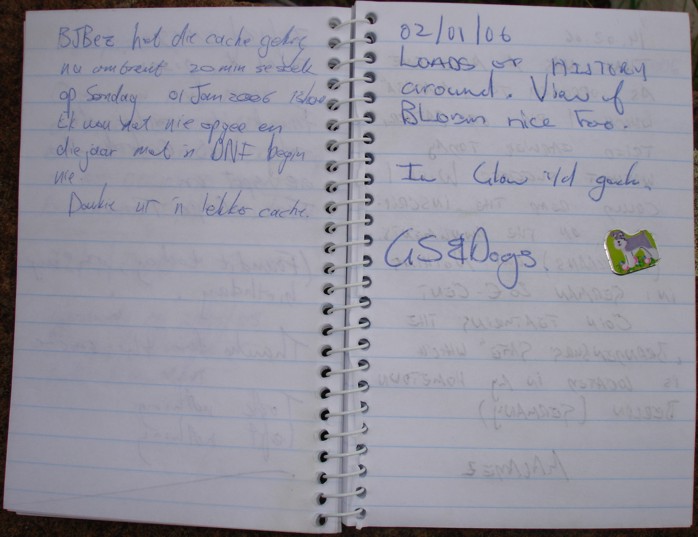 BJBez het die cache gekry
na omtrent 20 min se soek
op Sondag 01 Jan 2006
Ek wou net nie opgee en
die jaar met 'n DNF begin
nie.
Dankie vir 'n lekker cache.
02/01/06
LOADS OF HISTORY
around. View of
Bloem nice Too.
In Glow
GS & Dogs